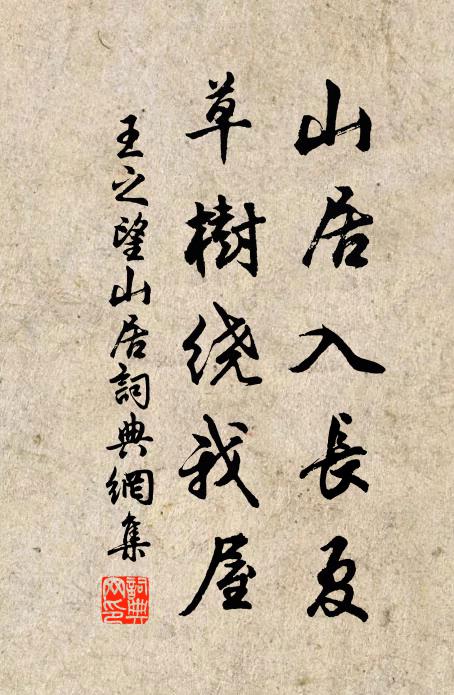 山居入長夏
草樹繞我屋
王之望山居詞典網集
詞典網印